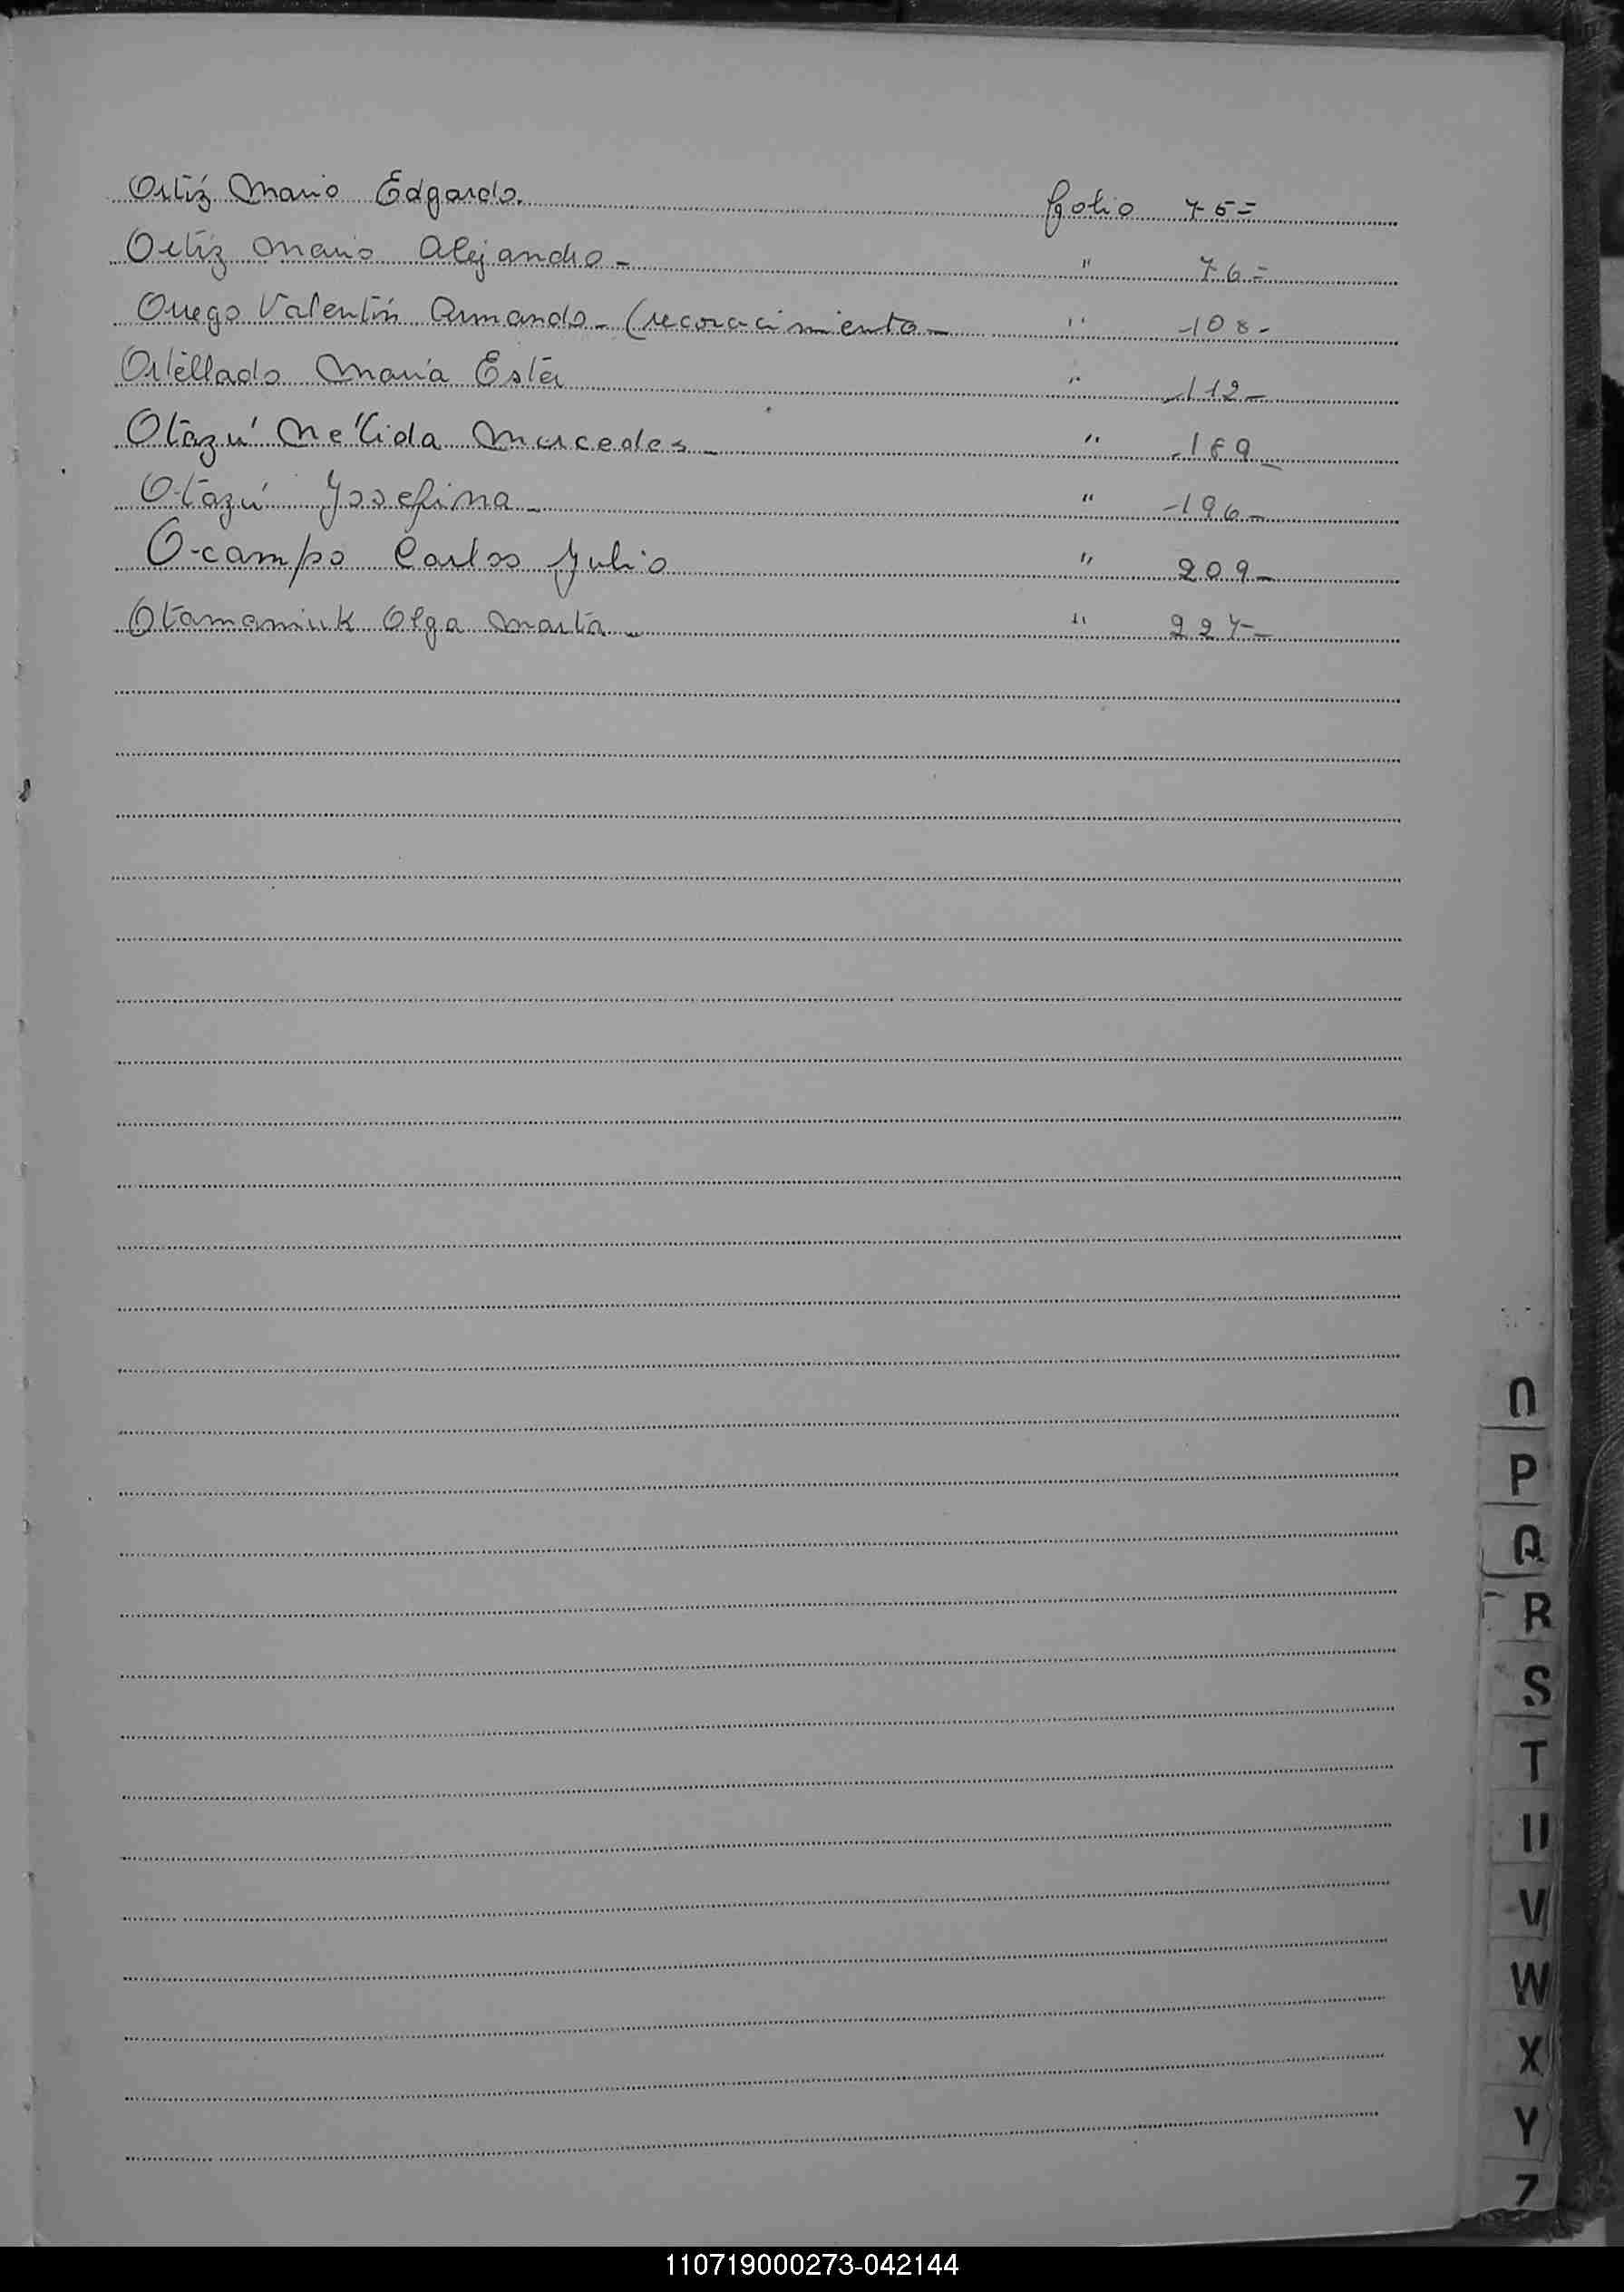 Ortiz Mario Edgardo. folio 75=
Ortiz Mario Alejandro - " 76=
Orrego Valentín Armando - (reconocimiento - " -108-
Ortellado María Ester " -112-
Otazú Nélida Mercedes - " -189-
Otazú Josefina - " -196-
Ocampo Carlos Julio " 209-
Otamaniuk Olga Marta - " 227-
O
P
Q
R
S
T
U
V
W
X
Y
Z
110719000273-042144